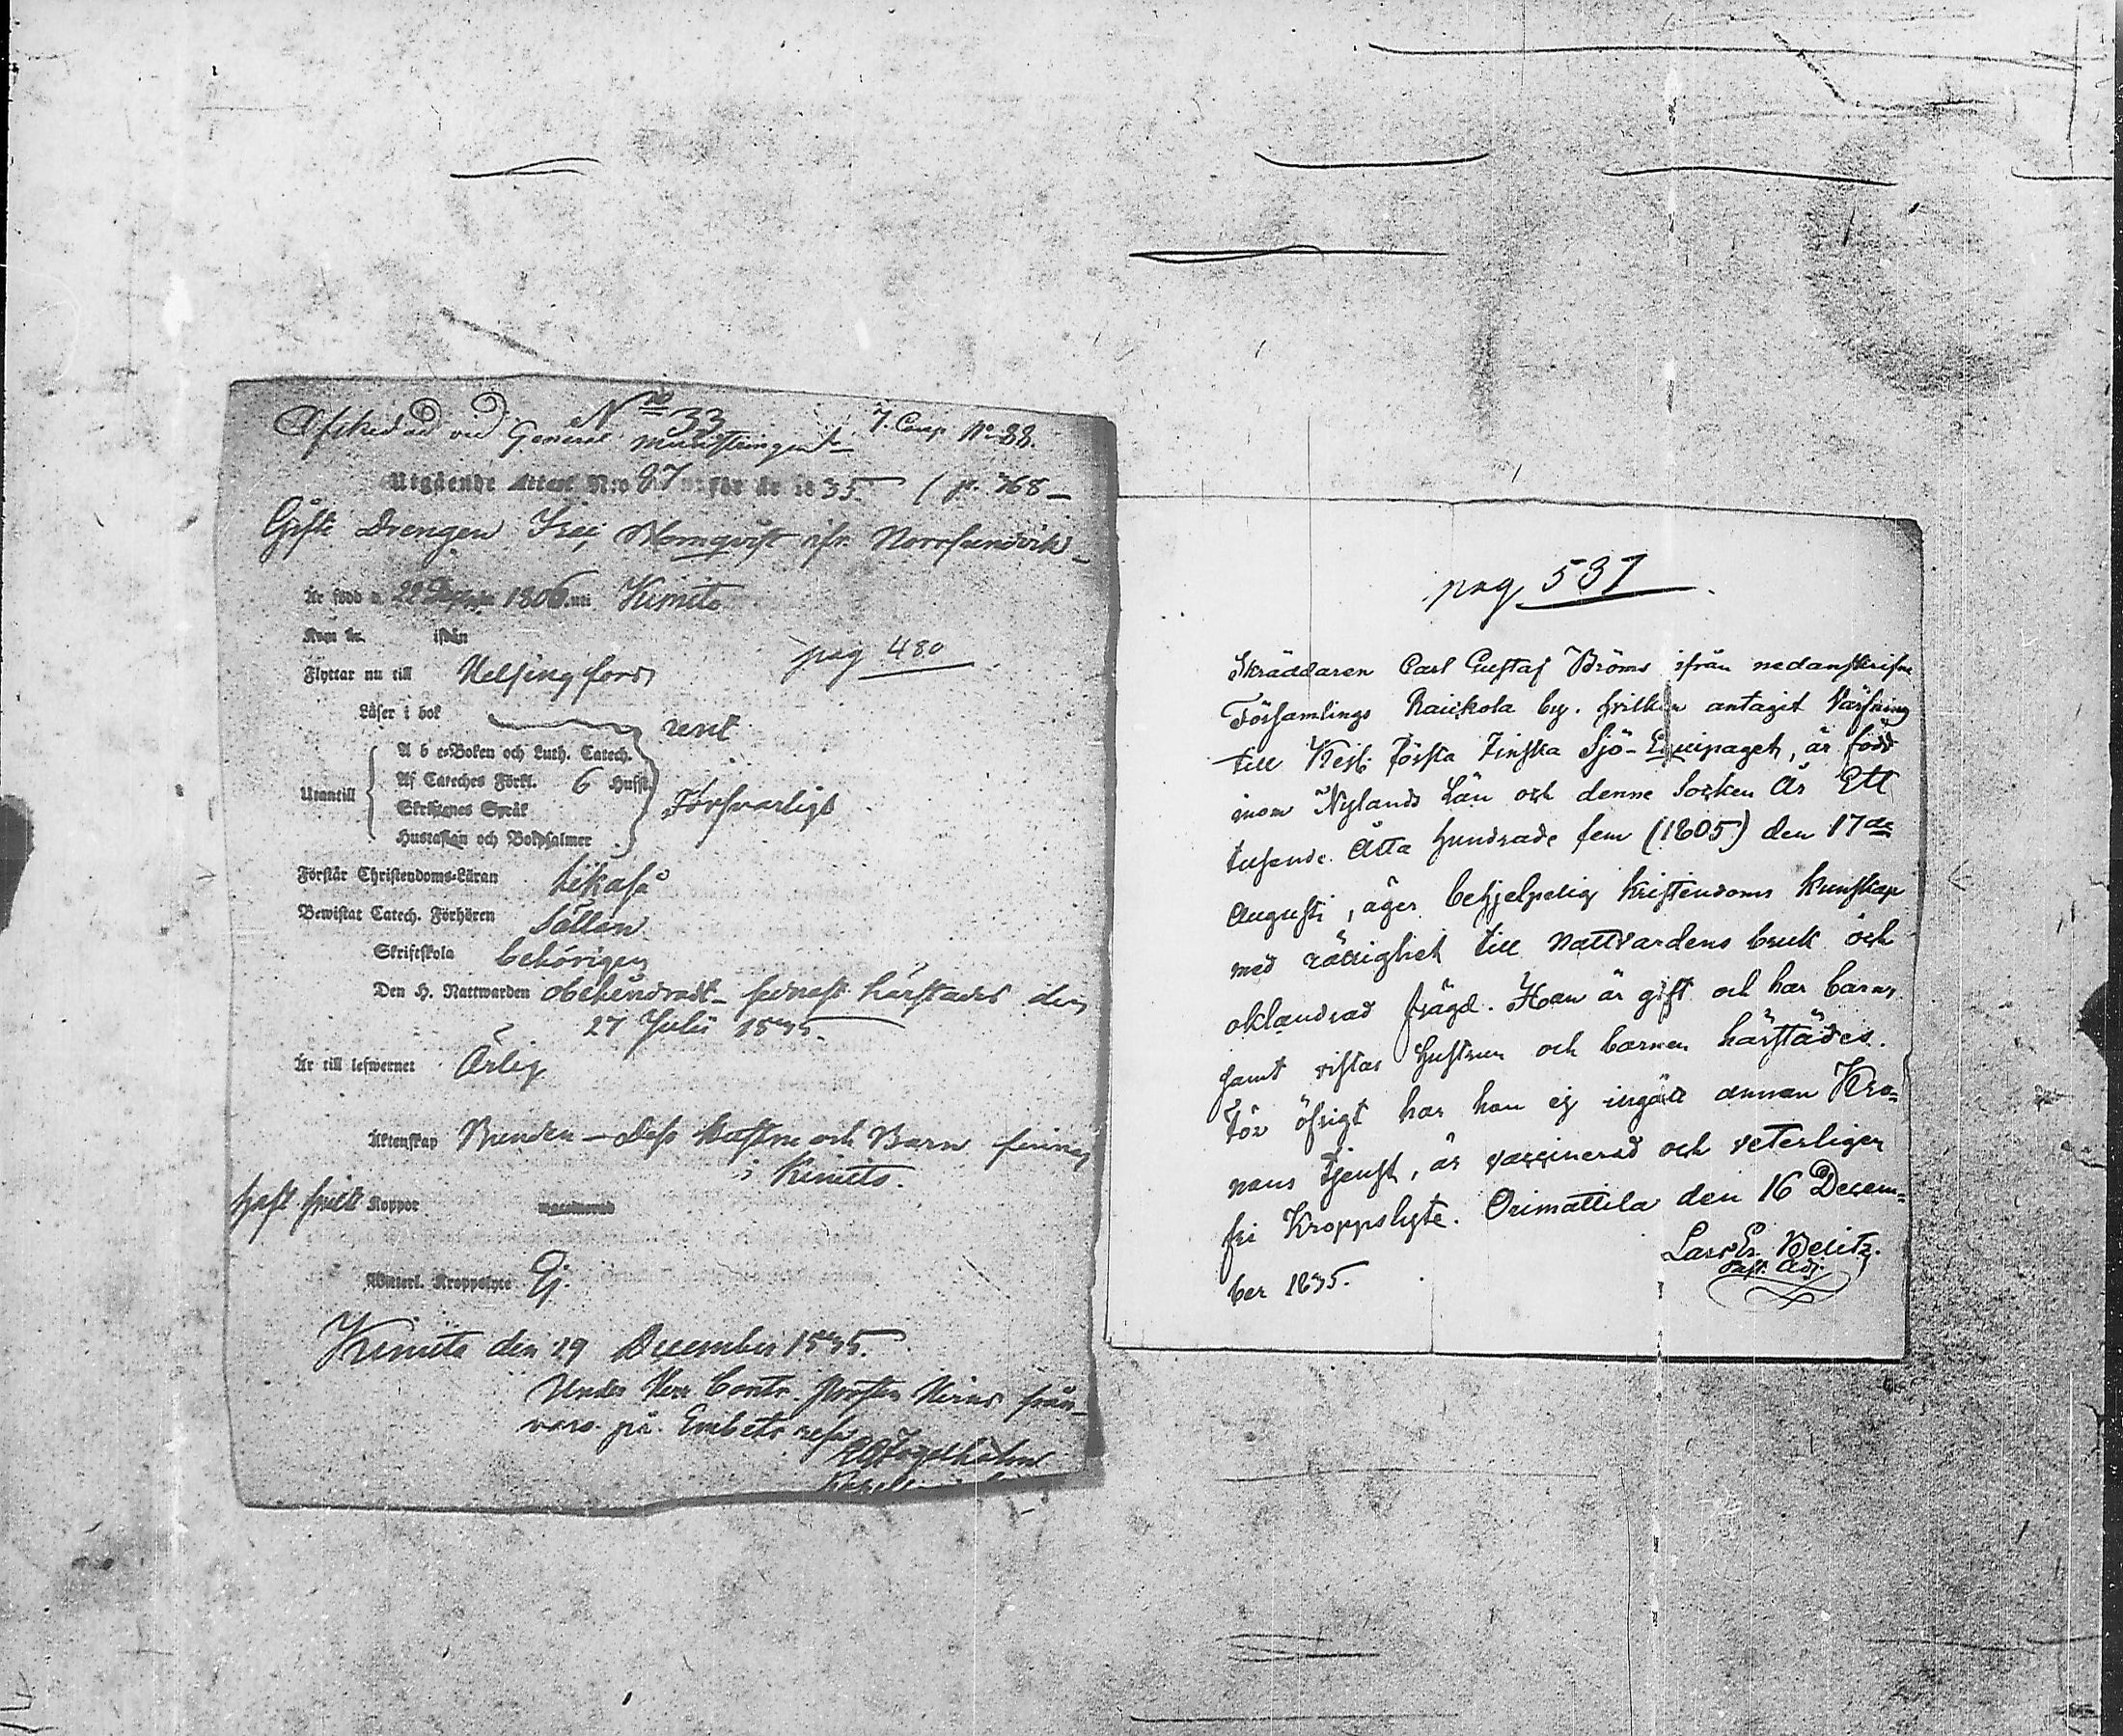 No 33
Afskedad vid General Mönstringen 7. Comp No 88.
Utgående Attest N:o 87 för år 1835. / p. 368
Gifte Drengen Isac Holmqvist ifr. Norrsundvik
Är född d. 22 1806 uti Kimito
Kom år ifrån
pag 480
Flyttar nu till Helsingfors
Läser i bok rent
A b c-Boken och Luth. Catech.
Af Cateches Förkl. 6 Hufst.
Utantill Försvarligt
Skriftenes Språk
Hustaflan och Botpsalmer
Förstår Christendoms-Läran likaså
Bewistat Catech. Förhören Sällan
Skriftskola behörigen
Den H. Nattwarden obehindradt sednast härstädes den
27 Julii 1835.
Är till lefwernet Ärlig
Äktenskap Bunden – Dess Hustru och Barn finnes
i Kimito.
haft Koppor waccinerad
Kroppslyte Ej.
Kimito den 29 December 1835.
Under Herr Contr. Prosten från-
varo på Embets resa
Fogelholm
pag 531
Skräddaren Carl Gustaf Bröms ifrån nedanskrifne
Församlings Raikola by. hvilken antagit Värfning
till Kejs: första Finska Sjö-Equipaget, är född
inom Nylands Län och denne Socken År Ett
tusende Åtta hundrade fem (1805) den 17de
Augusti, äger behjelpelig kristendoms kunskap
med rättighet till nattvardens bruk och
oklandrad frägd. Han är gift och har barn,
samt vistas hustrun och barnen härstädes.
För öfrigt har han ej ingått annan Kro-
nans tjenst, är vaccinerad och veterligen
fri Kroppslyte. Orimattila den 16 Decem-
ber 1835.
Lars Er. Belitz.
Past. Adj.